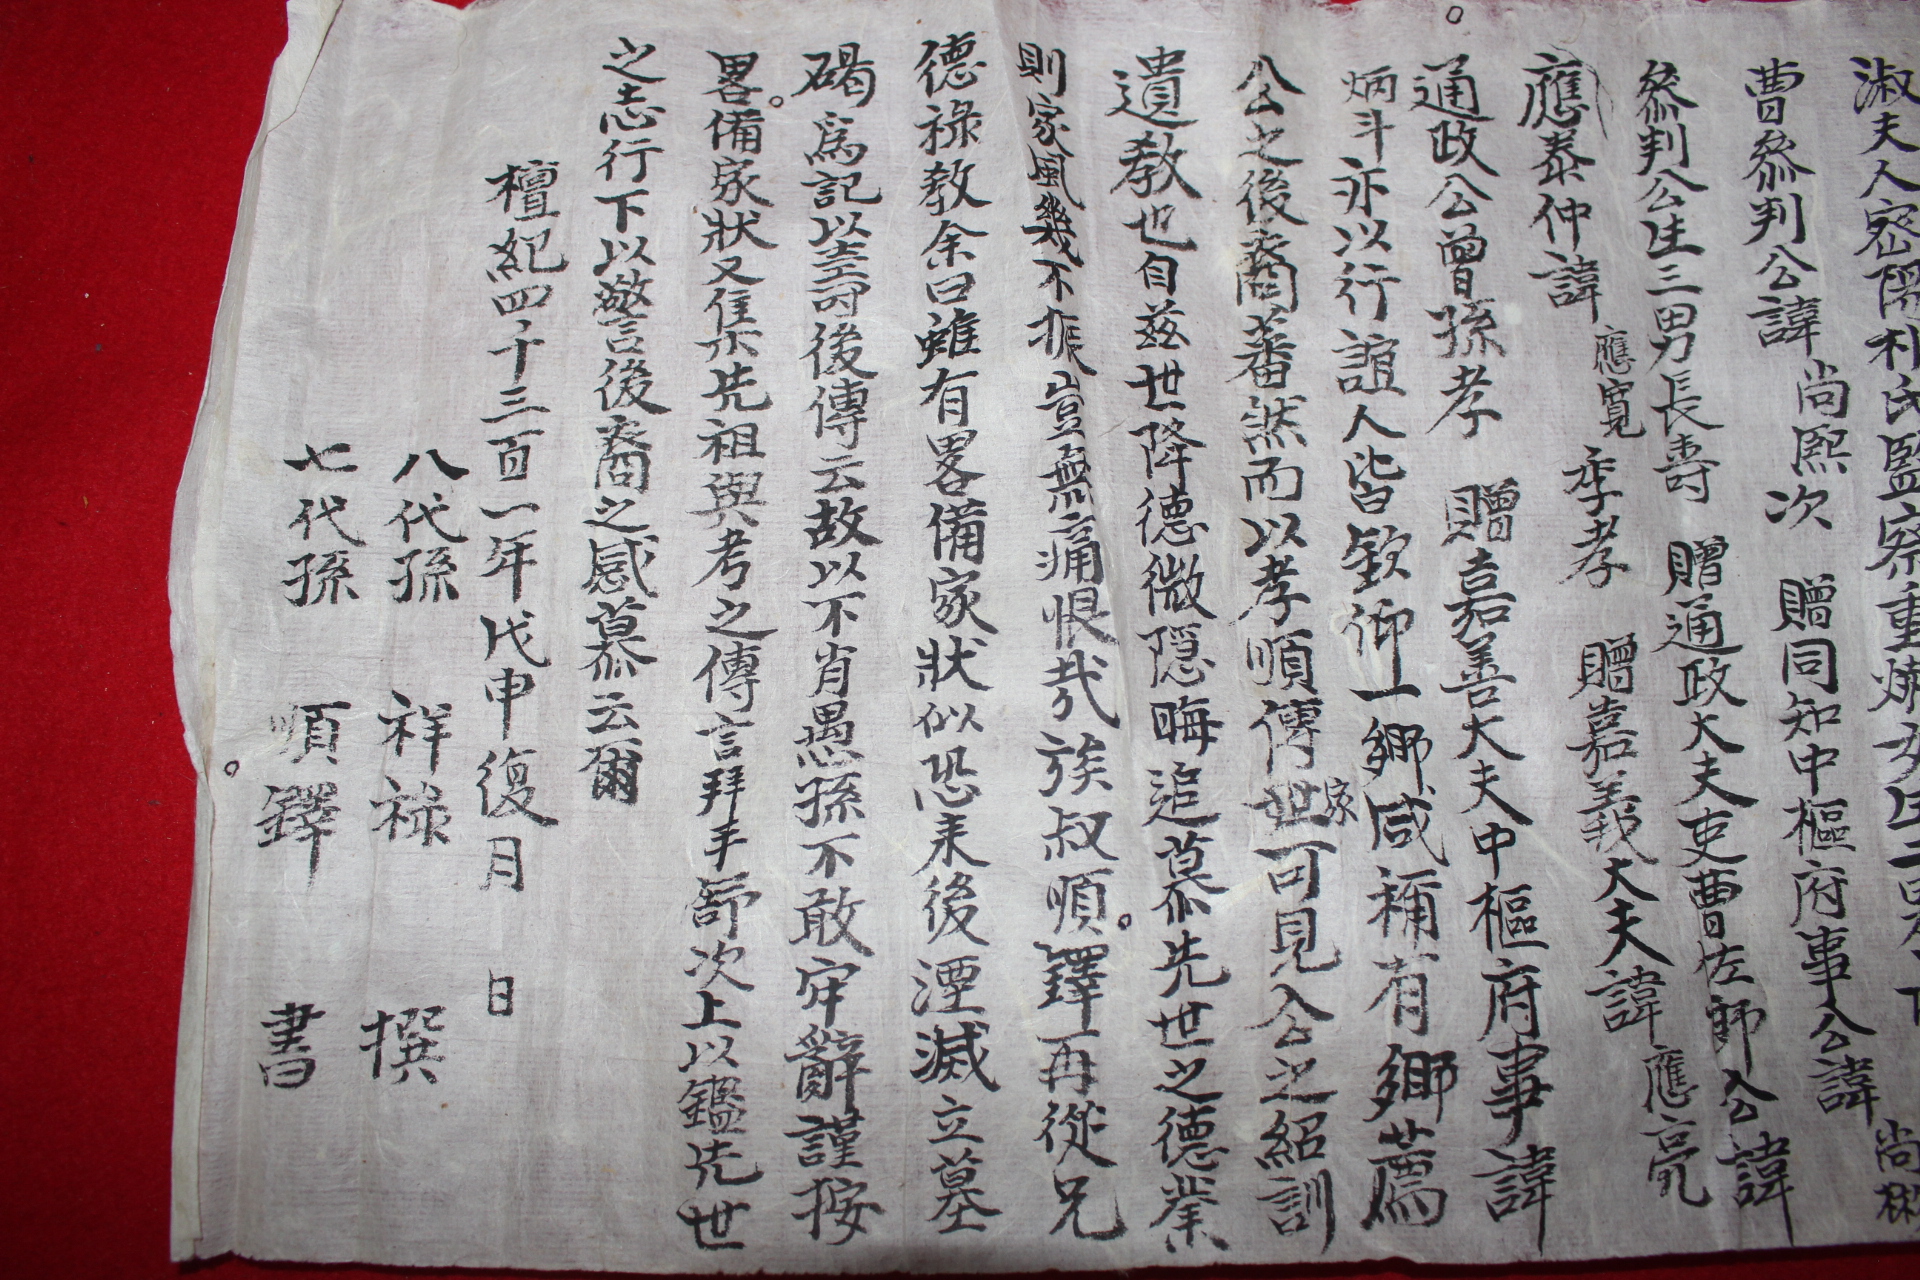 淑夫人密陽朴氏監察重
曹叅判公諱尚熙次 贈同知中樞府事公諱尚
叅判公生三男長壽 贈通政大夫吏曹佐郎公諱
應泰仲諱應寬季孝 贈嘉義大夫諱應亮
通政公曾孫孝 贈嘉善大夫中樞府事諱
炳斗亦以行誼人皆欽仰一鄉咸稱有鄉薦
公之後裔蕃然而以孝順傳家世可見公之紹訓
遺教也自茲世降德微隱晦追慕先世之德業
則家風幾不振豈無痛恨哉族叔順鐸再從兄
德祿教余曰雖有畧備家狀似恐未後湮滅立墓
碣爲記以壽後傳云故以不肖愚孫不敢牢辭謹按
畧備家狀又集先祖與考之傳言拜手舒次上以鑑先世
之志行下以警言後裔之感慕云爾
檀紀四千三百一年戊申復月 日
八代孫 祥祿 撰
七代孫 順鐸 書